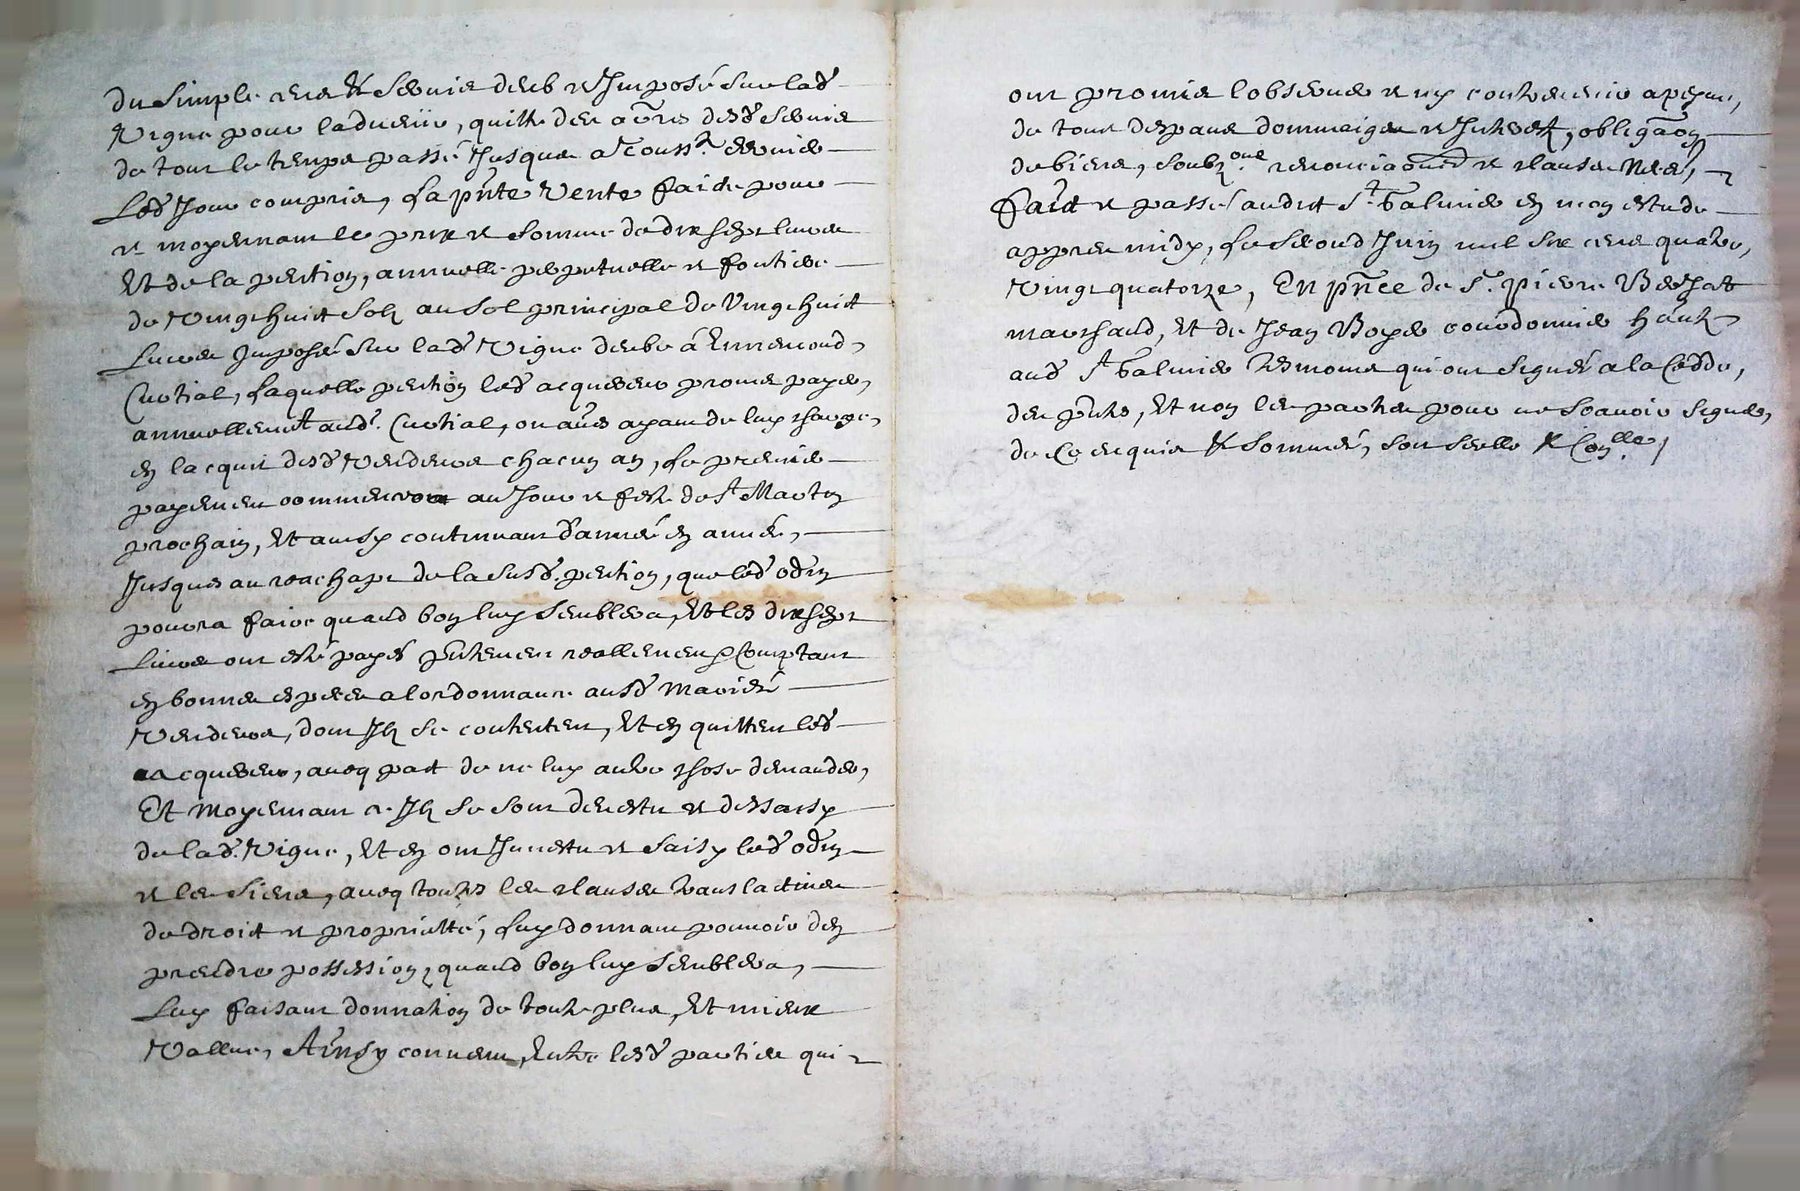 du simple cens & servis deub et Imposé sur lad
Vigne pour laduenir, quitte des arr̃es desd servis
de tout le temps passé Jusques a Touss.t dernier
Led Jour compris, La pñte Vente faicte pour
et moyennant le prix et somme de dix sept livres
Et de la pention, annuelle perpetuelle et fonciere
de Vingt huict solz au sol principal de Vingt huict
Livres Imposée sur lad Vigne deube á Ennemond
Curtial, Laquelle pention led acquereur promet payer,
annuellem.t aud. Curtial, ou aũes ayant de luy charge,
en lacquit desd Vendeurs chacun an, Le premier
payement commencera au Jour et feste de S.t Martin
prochain, Et ainsy continuant d'année en année,
Jusques au reachapt de la susd. pention, que led odin
pourra faire quand bon luy semblera, Et les dix sept
Livres ont esté payés pñtement reallement Comptant
en bonnes especes a lordonnance ausd Mariés
Vendeurs, dont Ilz se contentent, Et en quittent led
acquereur, avec pact de ne luy autre chose demander,
Et Moyennant ce Ilz se sont devestu et dessaisy
de lad. Vigne, Et en ont Investu et saisy led odin
et les siens, avec toutes les clauses translatives
de droict et proprietté, Luy donnant pouvoir den
prendre possession, quand bon luy semblera,
Luy faisant donnation de toute plus, Et mieux
Vallue, Ainsy convenu, Entre lesd parties qui
ont promis lobserver et ny contrevenir a peyne,
de tous despans dommaiges et Interestz, obliga͠on
de biens, soubz.ons renonciaons et clauses Nres,
Faict et passé audict S.t Galmier en mon estude
appres midy, Le second Juin mil six cens quatre
Vingt quatorze, En pñce de S.r Pierre Verjat
marchand, Et de Jean Boyer courdonnier habt.
aud S.t Galmier tesmoins qui ont signés a la Cedde,
des pñtes, Et non les parties pour ne scavoir signer,
de Ce enquis & sommés, soit scellé & Con.lle